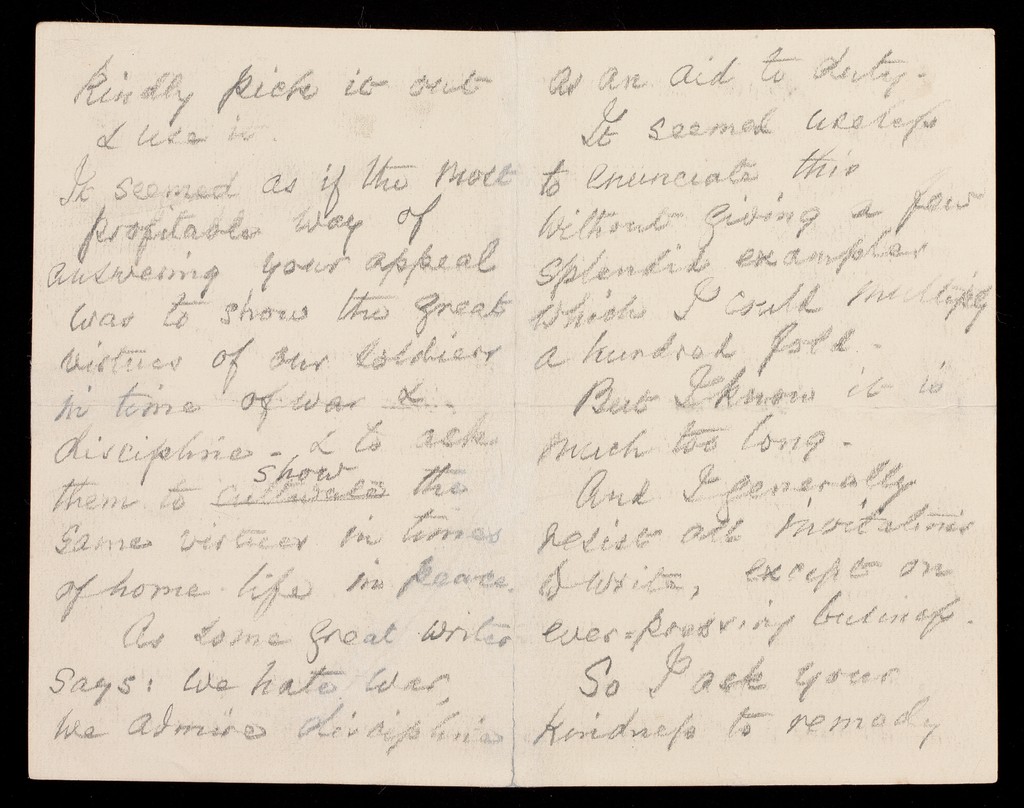 kindly pick it out
& use it.
It seemed as if the most
profitable way of
answering your appeal
was to show the great
virtues of our soldiers
in time of war &
discipline - & to ask
show
them to cultivate the
same virtues in times
of home life in peace.
As some great writer
says: we hate war,
we admire discipline
as an aid to duty.
It seemed useless
to enunciate this
without giving a few
splendid examples
which I could multiply
a hundred fold -
But I know it is
much too long -
And I generally
resist all invitations
to write, except on
ever=pressing business.
So I ask your
kindness to remedy